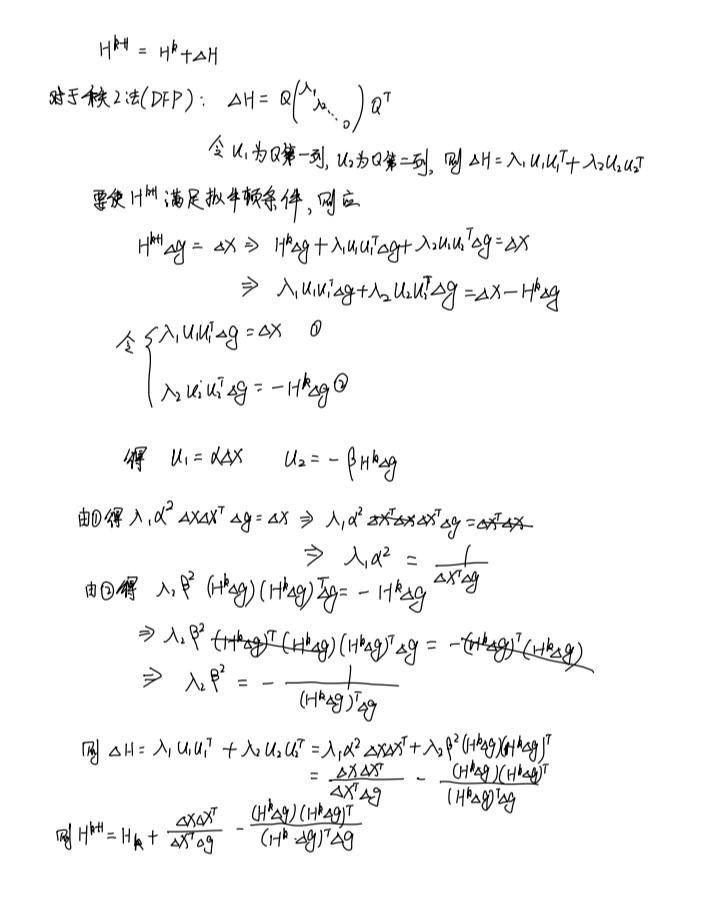 H^{k+1} = H^k + ΔH
对于秩2法(DFP): ΔH = Q(λ₁ λ₂ ⋱ 0) Q^T
令 u₁为Q第一列, u₂为Q第二列, 则 ΔH = λ₁u₁u₁^T + λ₂u₂u₂^T
要使 H^{k+1} 满足拟牛顿条件, 则应
H^{k+1}Δg = ΔX ⇒ H^kΔg + λ₁u₁u₁^TΔg + λ₂u₂u₂^TΔg = ΔX
⇒ λ₁u₁u₁^TΔg + λ₂u₂u₂^TΔg = ΔX - H^kΔg
令 { λ₁u₁u₁^TΔg = ΔX ①
λ₂u₂u₂^TΔg = -H^kΔg ②
得 u₁ = αΔX u₂ = -βH^kΔg
由①得 λ₁α² ΔXΔX^T Δg = ΔX ⇒ λ₁α² ΔX^TΔX ΔX^TΔg = ΔX^TΔX
⇒ λ₁α² = 1/(ΔX^TΔg)
由②得 λ₂β² (H^kΔg)(H^kΔg)^TΔg = -H^kΔg
⇒ λ₂β² (H^kΔg)^T(H^kΔg)(H^kΔg)^TΔg = -(H^kΔg)^T(H^kΔg)
⇒ λ₂β² = - 1/((H^kΔg)^TΔg)
则 ΔH = λ₁u₁u₁^T + λ₂u₂u₂^T = λ₁α²ΔXΔX^T + λ₂β²(H^kΔg)(H^kΔg)^T
= ΔXΔX^T/(ΔX^TΔg) - (H^kΔg)(H^kΔg)^T/((H^kΔg)^TΔg)
则 H^{k+1} = H_k + ΔXΔX^T/(ΔX^TΔg) - (H^kΔg)(H^kΔg)^T/((H^k·Δg)^TΔg)